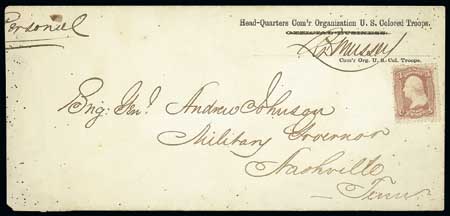 Personal
Head-Quarters Com'r Organization U. S. Colored Troops.
OFFICIAL BUSINESS.
R D Mussey
Com'r Org. U. S. Col. Troops.
Brig: Genl. Andrew Johnson
Military Governor
Nashville
Tenn